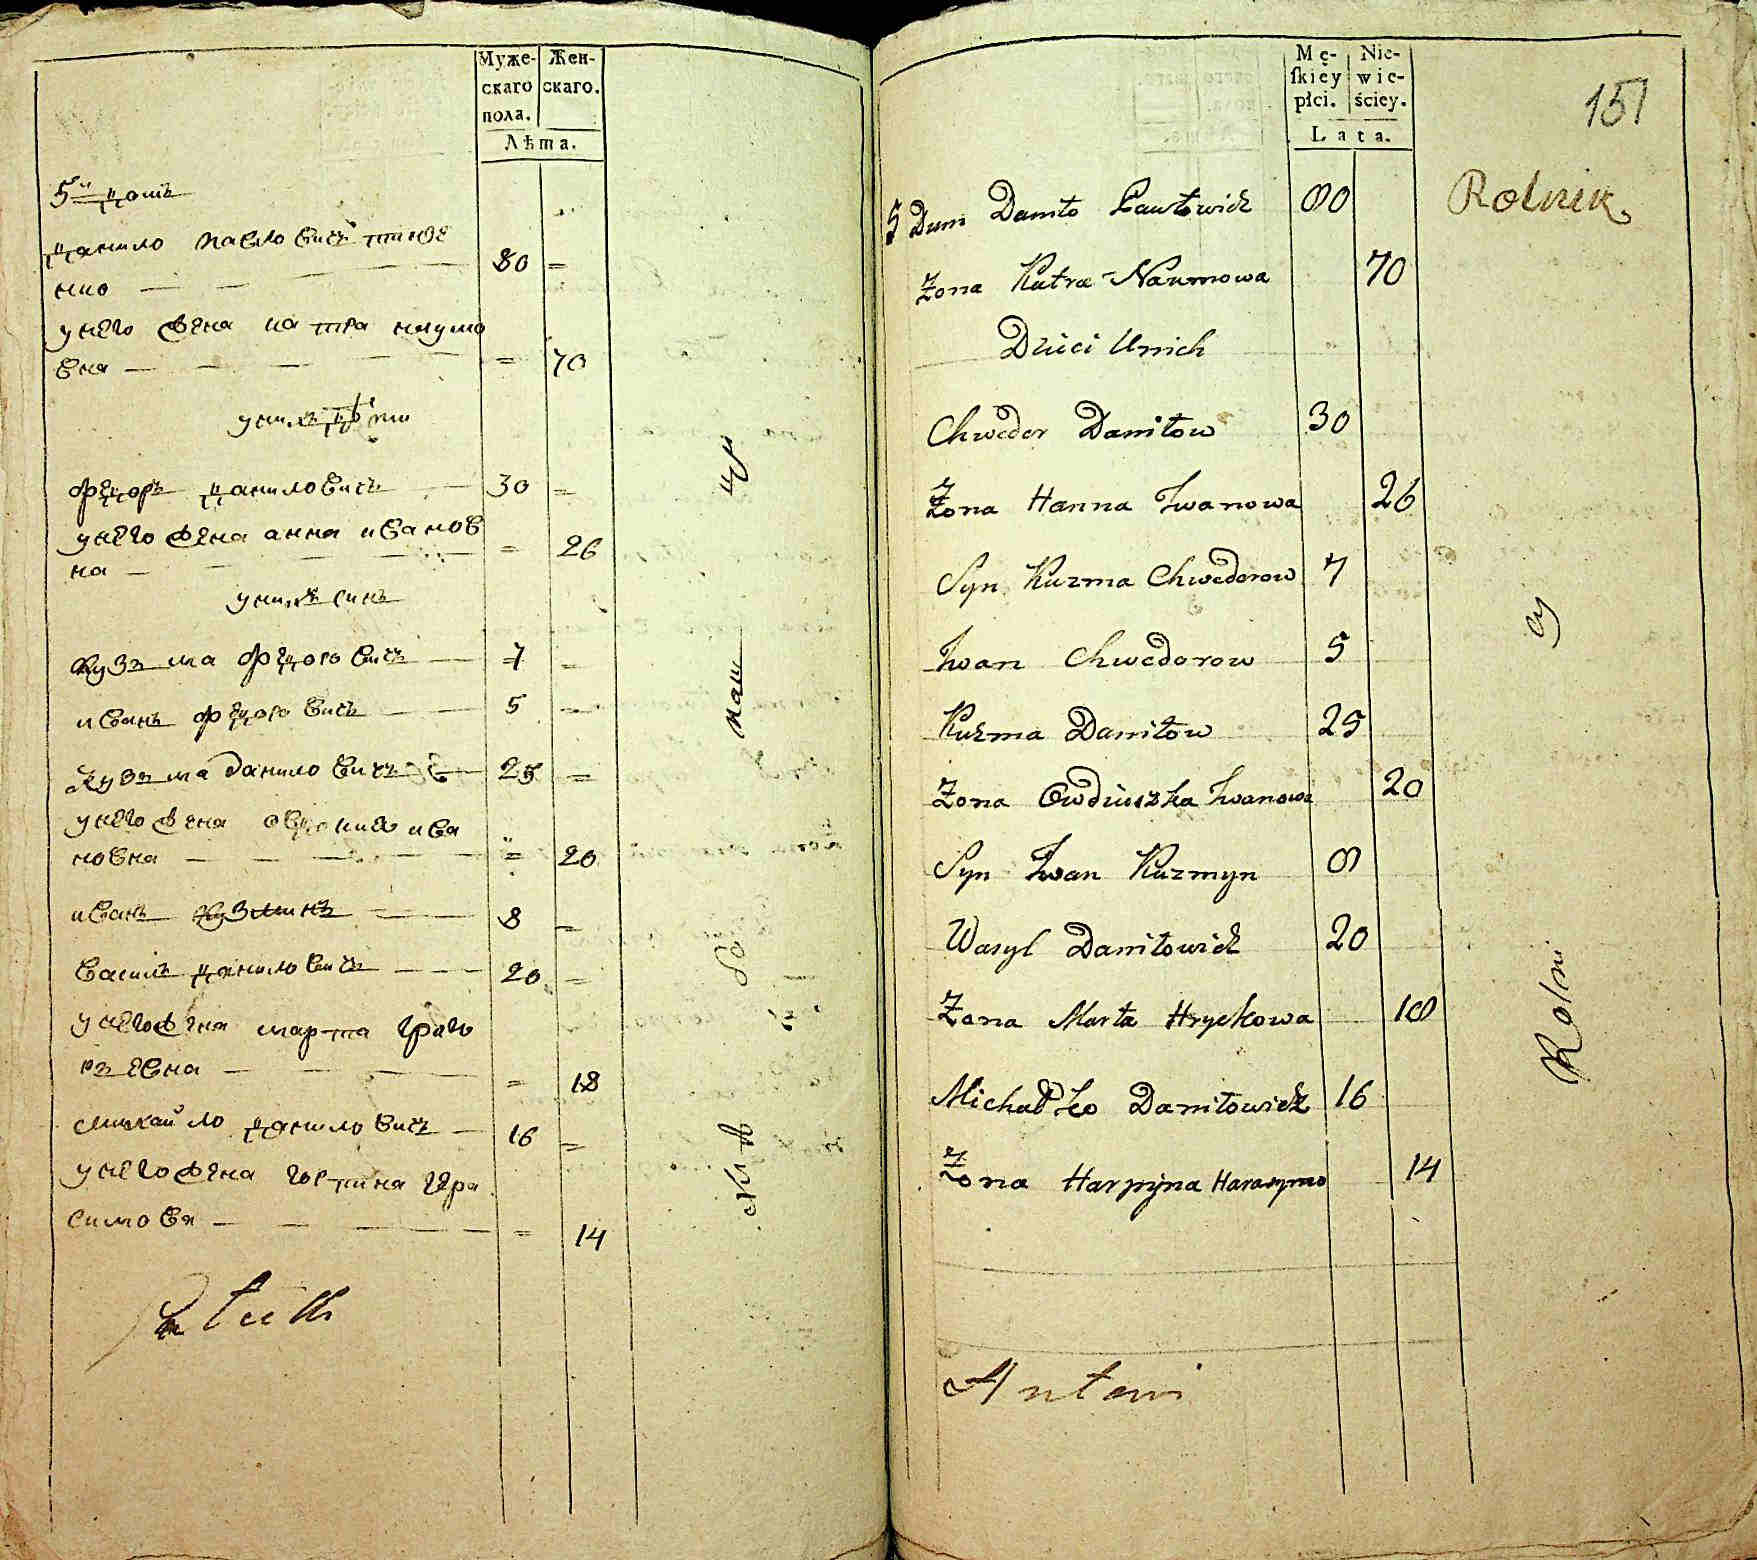 Муже-
скаго
пола.
Жен-
скаго.
Лѣта.
5й домъ
данило павловичъ
80 =
унего жена катра наумо
вна — = 70
унихъ дѣти
федоръ даниловичъ 30 =
унего жена анна иванов
на — = 26
унихъ синъ
кузьма федоровичъ 7 =
иванъ федоровичъ 5 =
кузьма даниловичъ 25 =
унего жена ива
новна — = 20
иванъ кузминъ 8 =
василь даниловичъ 20 =
унего жена марта григо
рьевна — = 18
михайло даниловичъ 16 =
унего жена гера
симова — = 14
Mę-
skiey
płci.
Nie-
wie-
ściey.
Lata.
151
5 Dum Daniło Pawłowicz 80 Rolnik
Zona Katra Naumowa 70
Dzieci Unich
Chwedor Daniłow 30
Zona Hanna Iwanowa 26
Syn Kuzma Chwedorow 7
Iwan Chwedorow 5
Kuzma Daniłow 25
Zona Owdiuszka Iwanowa 20
Syn Iwan Kuzmyn 8
Wasyl Daniłowicz 20
Zona Marta Hryckowa 18
Michałko Daniłowicz 16
Zona Harpyna Harasymo 14
Antoni